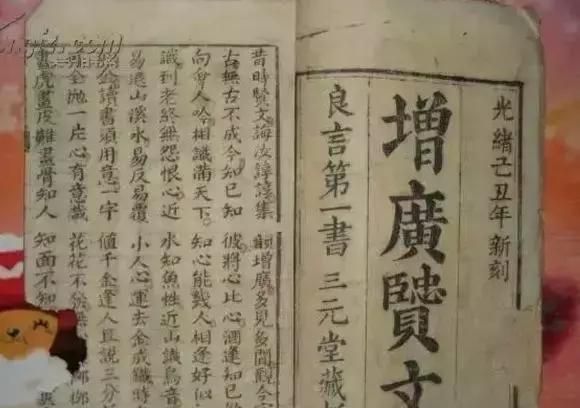 光緒己丑年新刻
增廣賢文
良言第一書 三元堂藏
昔時賢文誨汝諄諄集韻增廣多見多聞觀今
古無古不成今知己知彼將心比心酒逢知己
向會人吟相識滿天下知心能幾人相逢好似
識到老終無怨恨心近水知魚性近山識鳥音
易退山溪水易反易覆小人心運去金成鐵時
金讀書須用意一字值千金逢人且說三分
全拋一片心有意栽花花不發無
畫虎畫皮難畫骨知人知面不知